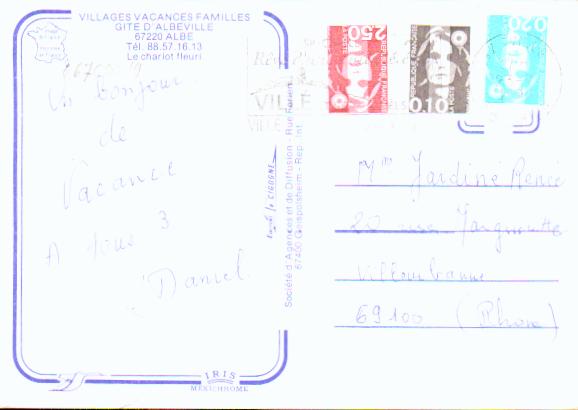 VILLAGES VACANCES FAMILLES
GITE D'ALBEVILLE
67220 ALBE
Tél. 88.57.16.13
Le chariot fleuri
Un bonjour
de
Vacance
A tous 3
Daniel
Société d'Agences et de Diffusion - Rue
67400 Geispolsheim - Rep. Int.
CIGOGNE
IRIS
MEXICHROME
2,50
REPUBLIQUE FRANÇAISE
LA POSTE
0,10
REPUBLIQUE FRANÇAISE
LA POSTE
0,20
VILLE
VILLE
Mme Jardiné Renée
20 rue
Villeurbanne
69100 (Rhone)